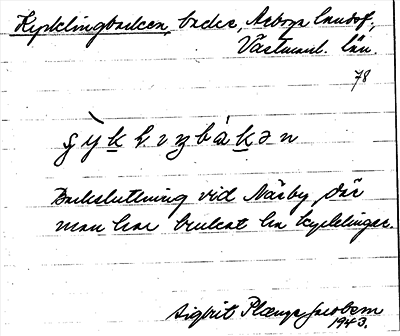 Kycklingbacken, backe, Arboga landsf.,
Västmanl. län.
78
Backsluttning vid Näsby, där
man har brukat ha kycklingar.
Sigbrit Plænge Jacobson
1943.